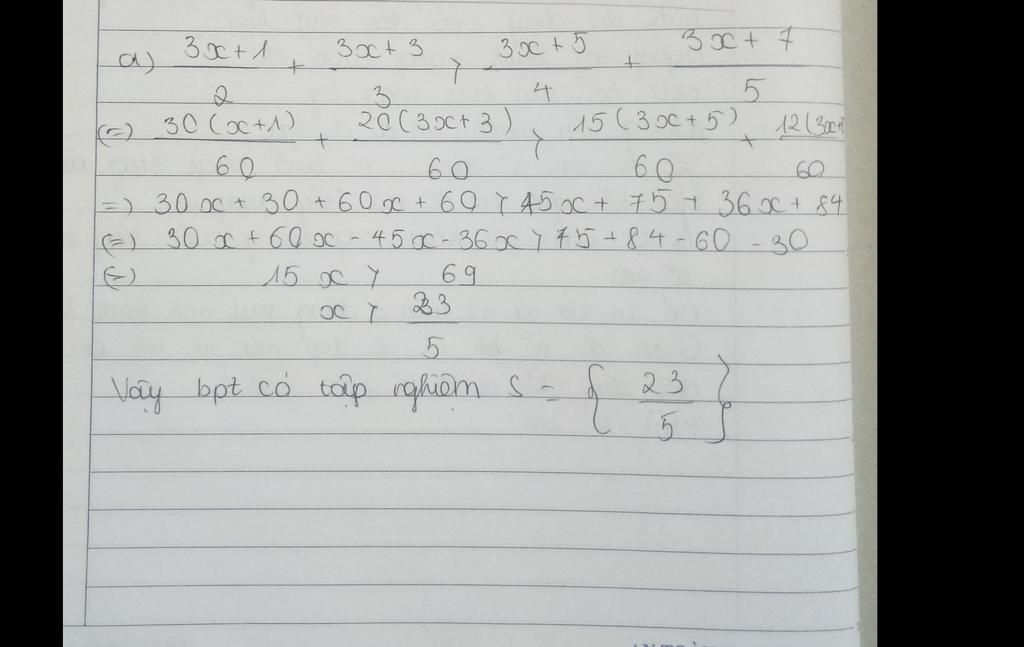 a) 3x+1/2 + 3x+3/3 > 3x+5/4 + 3x+7/5
(=) 30(x+1)/60 + 20(3x+3)/60 > 15(3x+5)/60 + 12(3x+/60
=) 30x + 30 + 60x + 60 > 45x + 75 + 36x + 84
(=) 30x + 60x - 45x - 36x > 75 + 84 - 60 - 30
(=) 15x > 69
x > 23/5
Vậy bpt có tập nghiệm S = {23/5}